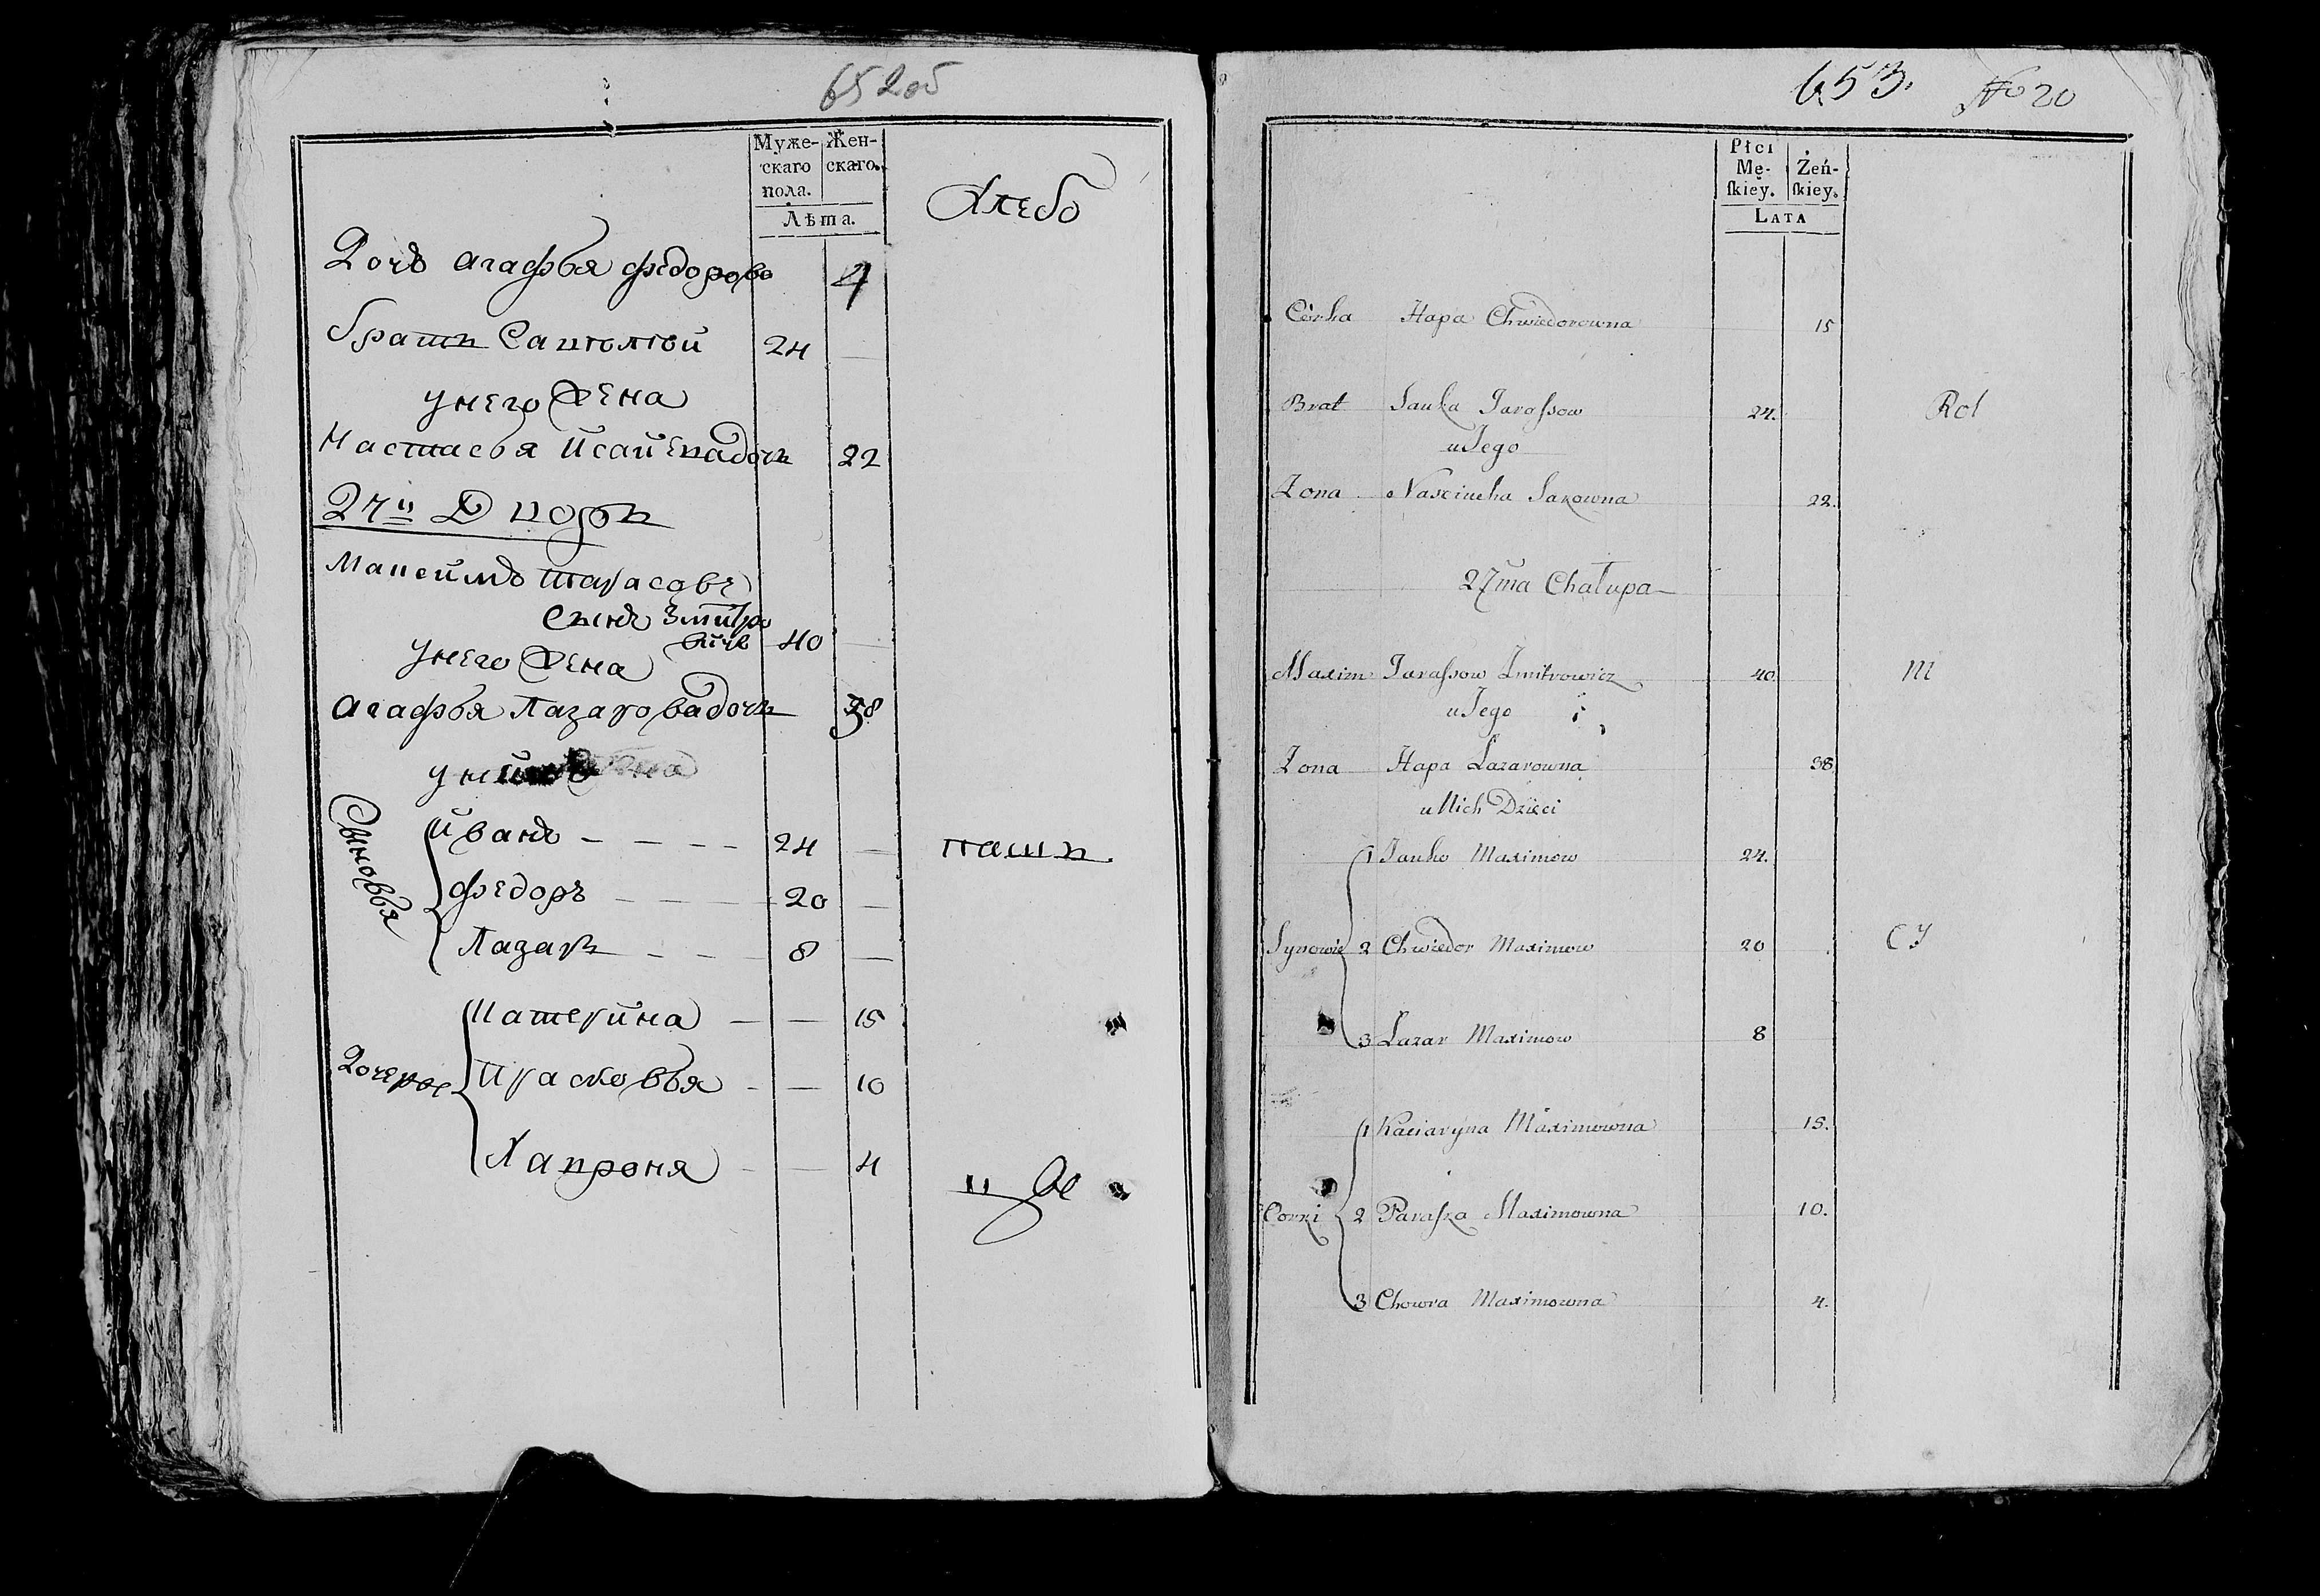 652 об
Муже-
скаго
пола.
Жен-
скаго.
Лѣта.
Хлебо
Дочь Агафья Федорово 4
братъ Савелѣй 24 —
унего жена
Настасья Исаиевадочь 22
27й Дворъ
Максимъ Тарасовъ
сынъ Змитро
вичь 40 —
унего жена
Агафья Лазаровадочь 38
Сыновья
Иванъ - - - - 24 —
паши.
Федоръ - - - - 20 —
Лазарь - - - 8 —
Дочерье
Катерина — — 15
Прасковья - — 10
Хавроня - — 4
цые
653. No 20
Płci
Mę-
ſkiey.
Żeń-
ſkiey.
LATA
Córka Hapa Chwiedorowna 15
Brat Sauka Taraſsow 24. Rol
u Jego
Zona Naściucha Sakowna 22.
27ma Chałupa
Maxim Taraſsow Zmitrowicz 40 m
u Jego
Zona Hapa Łazarowna 38
u Nich Dzieci
1 Janko Maximow 24.
Synowie 2 Chwiedor Maximow 20 CY
3 Łazar Maximow 8
1 Kaciaryna Maximowna 15.
Corki 2 Paraſka Maximowna 10.
3 Chowra Maximowna 4.